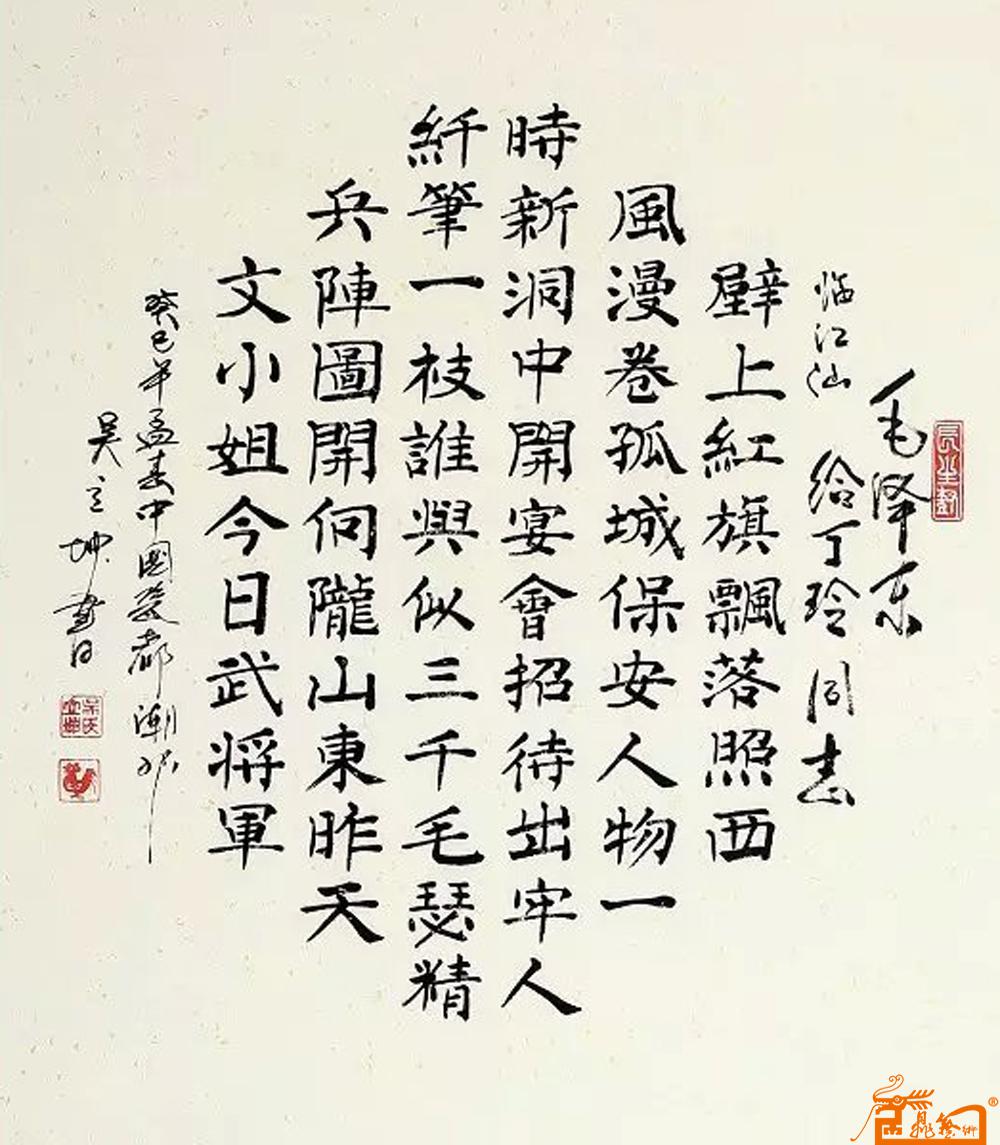 毛泽东
临江仙 给丁玲同志
壁上紅旗飄落照西
風漫卷孤城保安人物一
時新洞中開宴會招待出牢人
纤筆一枝誰與似三千毛瑟精
兵陣圖開向隴山東昨天
文小姐今日武将軍
癸巳年孟春中國瓷都潮州
吴立坤書